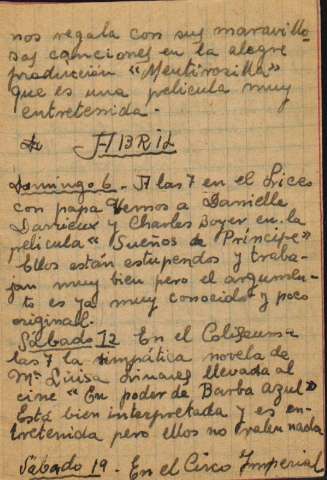 nos regala con sus maravillo-
sas canciones en la alegre
producción "Mentirosilla"
que es una película muy
entretenida.-
ABRIL
Domingo 6 - A las 7 en el Liceo
con papá vemos a Danielle
Darrieux y Charles Boyer en la
película "Sueños de Príncipe"
Ellos están estupendos y traba-
jan muy bien pero el argumen-
to es ya muy conocido y poco
original.
Sábado 12 En el Coliseum a
las 7 la simpática novela de
Mª Luisa Linares llevada al
cine "En poder de Barba Azul"
Está bien interpretada y es en-
tretenida pero ellos no valen nada
Sábado 19 - En el Circo Imperial